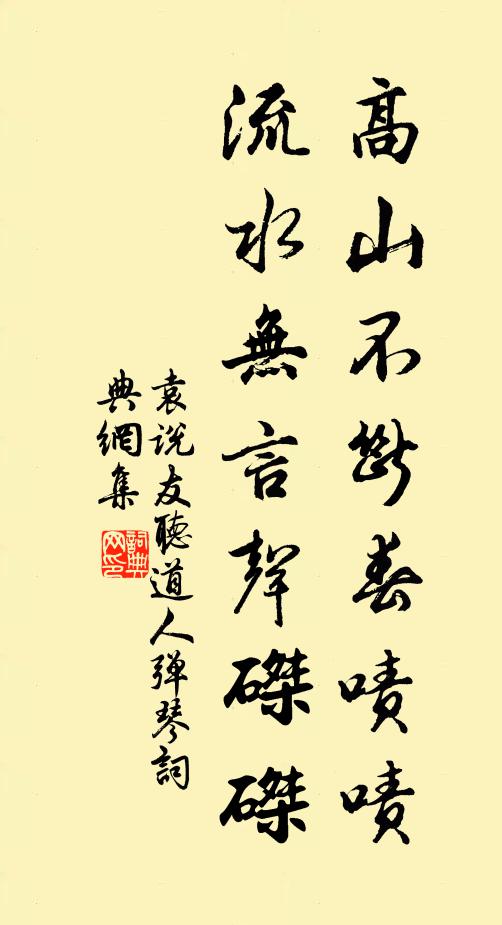 高山不斷春嘖嘖
流水無言聲磔磔
袁說友聽道人弹琴詞
典網集
詞典
网印